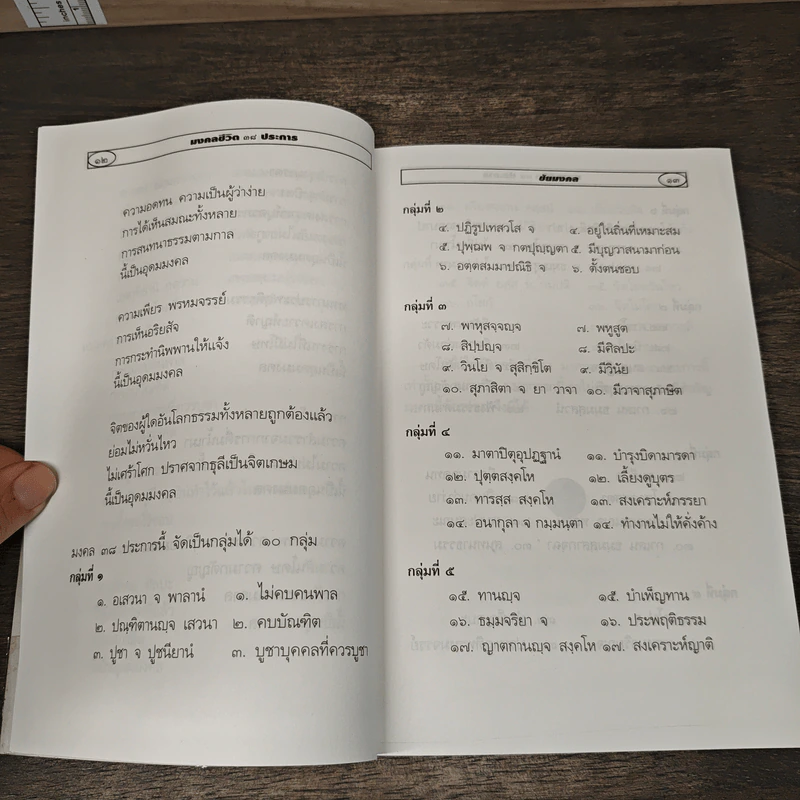 inches 1
๑๒
มงคลชีวิต ๓๘ ประการ
ความอดทน ความเป็นผู้ว่าง่าย
การได้เห็นสมณะทั้งหลาย
การสนทนาธรรมตามกาล
นี้เป็นอุดมมงคล
ความเพียร พรหมจรรย์
การเห็นอริยสัจ
การกระทำนิพพานให้แจ้ง
นี้เป็นอุดมมงคล
จิตของผู้ใดอันโลกธรรมทั้งหลายถูกต้องแล้ว
ย่อมไม่หวั่นไหว
ไม่เศร้าโศก ปราศจากธุลีเป็นจิตเกษม
นี้เป็นอุดมมงคล
มงคล ๓๘ ประการนี้ จัดเป็นกลุ่มได้ ๑๐ กลุ่ม
กลุ่มที่ ๑
๑. อเสวนา จ พาลานํ ๑. ไม่คบคนพาล
๒. ปณฺฑิตานญฺจ เสวนา ๒. คบบัณฑิต
๓. ปูชา จ ปูชนียานํ ๓. บูชาบุคคลที่ควรบูชา
ชัยมงคล
๑๓
กลุ่มที่ ๒
๔. ปฏิรูปเทสวาโส จ ๔. อยู่ในถิ่นที่เหมาะสม
๕. ปุพฺเพ จ กตปุญฺญตา ๕. มีบุญวาสนามาก่อน
๖. อตฺตสมฺมาปณิธิ จ ๖. ตั้งตนชอบ
กลุ่มที่ ๓
๗. พาหุสจฺจญฺจ ๗. พหูสูต
๘. สิปฺปญฺจ ๘. มีศิลปะ
๙. วินโย จ สุสิกฺขิโต ๙. มีวินัย
๑๐. สุภาสิตา จ ยา วาจา ๑๐. มีวาจาสุภาษิต
กลุ่มที่ ๔
๑๑. มาตาปิตุอุปฏฺฐานํ ๑๑. บำรุงบิดามารดา
๑๒. ปุตฺตสงฺคโห ๑๒. เลี้ยงดูบุตร
๑๓. ทารสฺส สงฺคโห ๑๓. สงเคราะห์ภรรยา
๑๔. อนากุลา จ กมฺมนฺตา ๑๔. ทำงานไม่ให้คั่งค้าง
กลุ่มที่ ๕
๑๕. ทานญฺจ ๑๕. บำเพ็ญทาน
๑๖. ธมฺมจริยา จ ๑๖. ประพฤติธรรม
๑๗. ญาตกานญฺจ สงฺคโห ๑๗. สงเคราะห์ญาติ